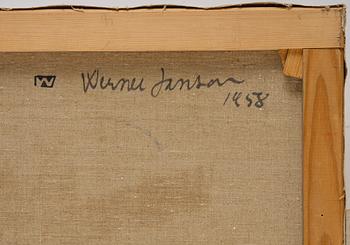 W Werner Janson
1958